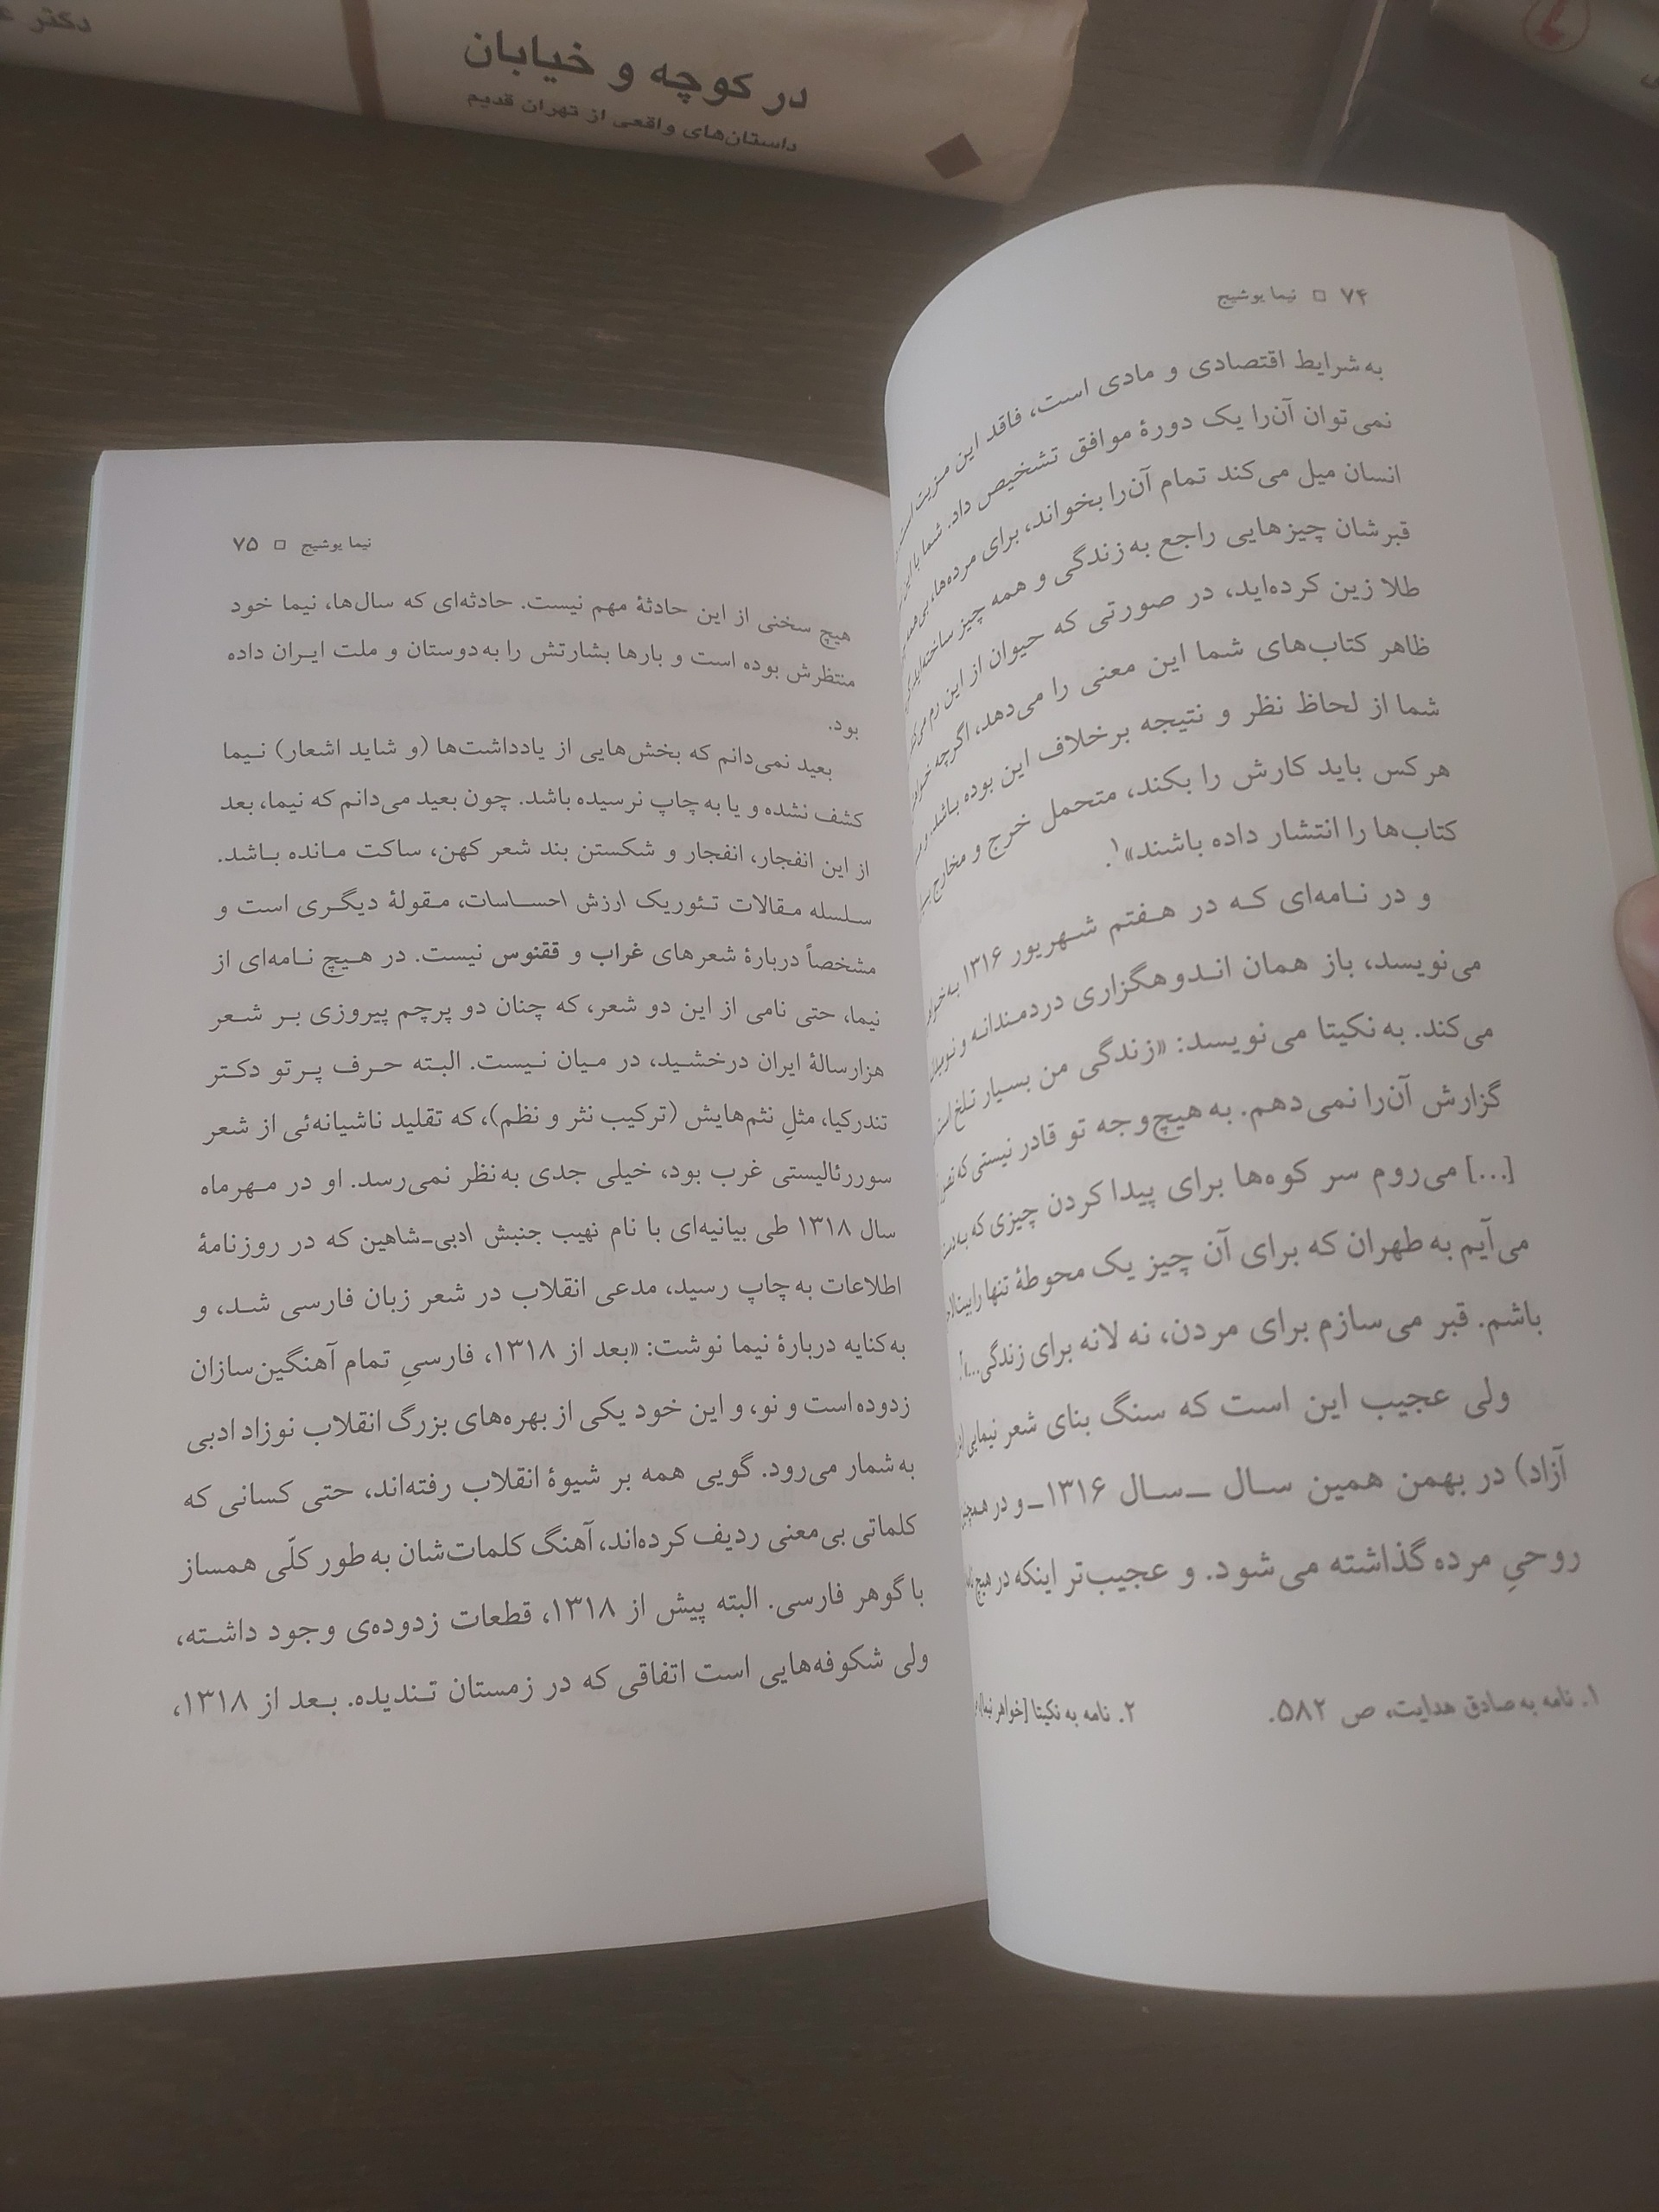 دکتر
در کوچه و خیابان
داستان‌های واقعی از تهران قدیم
۷۴ □ نیما یوشیج
به شرایط اقتصادی و مادی است، فاقد این مزیت است
نمی‌توان آن‌را یک دورهٔ موافق تشخیص داد. شما با این
انسان میل می‌کند تمام آن‌را بخواند، برای مرده‌ها،
قبرشان چیزهایی راجع به زندگی و همه چیز ساخته‌اید
طلا زین کرده‌اید، در صورتی که حیوان از این رم
ظاهر کتاب‌های شما این معنی را می‌دهد، اگرچه
شما از لحاظ نظر و نتیجه برخلاف این بوده باشد.
هرکس باید کارش را بکند، متحمل خرج و مخارج
کتاب‌ها را انتشار داده باشند»۱.
و در نـامه‌ای کـه در هـفتم شـهریور ۱۳۱۶
می‌نویسد، باز همان انـدوهگزاری دردمـندانـه و
می‌کند. به نکیتا می‌نویسد: «زندگی من بسیار تلخ است
گزارش آن‌را نمی‌دهم. به هیچ‌وجه تو قادر نیستی که
[...] می‌روم سر کوه‌ها برای پیدا کردن چیزی که
می‌آیم به طهران که برای آن چیز یک محوطهٔ تنها را
باشم. قبر می‌سازم برای مردن، نه لانه برای زندگی...»
ولی عجیب این است که سنگ بنای شعر نیمایی
آزاد) در بهمن همین سـال ـسـال ۱۳۱۶ـ و در
روحیِ مرده گذاشته می‌شود. و عجیب‌تر اینکه در هیچ
۱. نامه به صادق هدایت، ص ۵۸۲.
۲. نامه به نکیتا [خواهر نیما]
نیما یوشیج □ ۷۵
هیچ سخنی از این حادثهٔ مهم نیست. حادثه‌ای که سال‌ها، نیما خود
منتظرش بوده است و بارها بشارتش را به دوستان و ملت ایـران داده
بود.
بعید نمی‌دانم که بخش‌هایی از یادداشت‌ها (و شاید اشعار) نـیما
کشف نشده و یا به چاپ نرسیده باشد. چون بعید می‌دانم که نیما، بعد
از این انفجار، انفجار و شکستن بند شعر کهن، ساکت مـانده بـاشد.
سـلسله مـقالات تـئوریک ارزش احسـاسات، مـقولهٔ دیگـری است و
مشخصاً دربارهٔ شعرهای غراب و ققنوس نیست. در هـیچ نـامه‌ای از
نیما، حتی نامی از این دو شعر، که چنان دو پرچم پیروزی بـر شـعر
هزارسالهٔ ایران درخشـید، در مـیان نـیست. البـته حـرف پـرتو دکـتر
تندرکیا، مثلِ نثم‌هایش (ترکیب نثر و نظم)، که تقلید ناشیانه‌ئی از شعر
سوررئالیستی غرب بود، خیلی جدی به نظر نمی‌رسد. او در مـهرماه
سال ۱۳۱۸ طی بیانیه‌ای با نام نهیب جنبش ادبی-شاهین که در روزنامهٔ
اطلاعات به چاپ رسید، مدعی انقلاب در شعر زبان فارسی شـد، و
به‌کنایه دربارهٔ نیما نوشت: «بعد از ۱۳۱۸، فارسیِ تمام آهنگین‌سازان
زدوده است و نو، و این خود یکی از بهره‌های بزرگ انقلاب نوزاد ادبی
به شمار می‌رود. گویی همه بر شیوهٔ انقلاب رفته‌اند، حتی کسانی که
کلماتی بی‌معنی ردیف کرده‌اند، آهنگ کلمات‌شان به طور کلّی همساز
با گوهر فارسی. البته پیش از ۱۳۱۸، قطعات زدوده‌ی وجود داشـته،
ولی شکوفه‌هایی است اتفاقی که در زمستان تـندیده. بـعد از ۱۳۱۸،